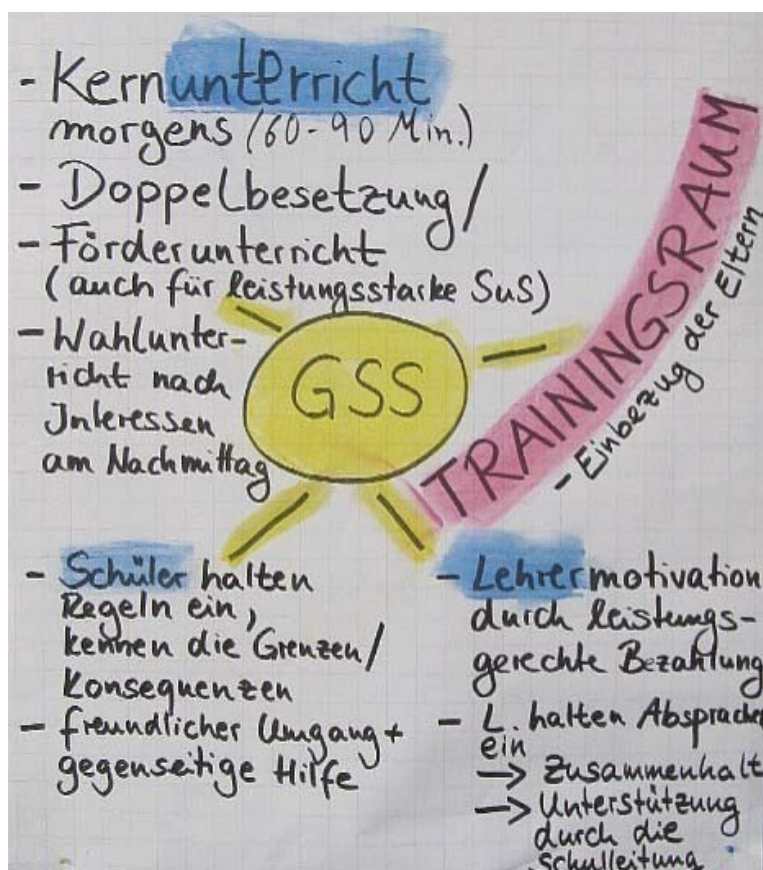 - Kernunterricht
morgens (60-90 Min.)
- Doppelbesetzung/
- Förderunterricht
(auch für leistungsstarke SuS)
- Wahlunter-
richt nach
Interessen
am Nachmittag
GSS
TRAININGSRAUM
- Einbezug der Eltern
- Schüler halten
Regeln ein,
kennen die Grenzen/
Konsequenzen
- freundlicher Umgang +
gegenseitige Hilfe
- Lehrermotivation
durch leistungs-
gerechte Bezahlung
- L. halten Absprachen
ein
→ Zusammenhalt
→ Unterstützung
durch die
Schulleitung